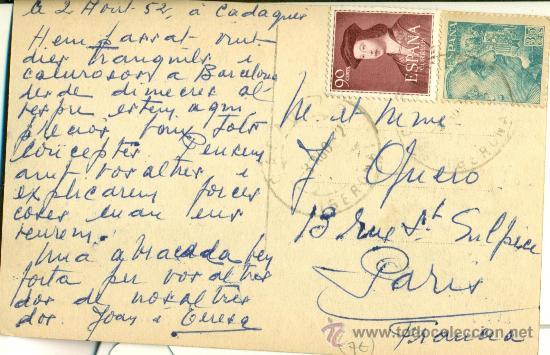 le 2 Août 52, à Cadaqués
Hem passat vuit
dies tranquils i
calurosos a Barcelona
desde dimecres al
vespre estem aqui
preciós sous tots
conceptes Pensem
amb vosaltres i
explicarem forces
coses cuan ens
veurem.
Una abraçada ben
forta per vosaltres
dos de nosaltres
dos. Joan i Teresa
90
ESPAÑA
CORREOS
ESPAÑA
GERONA
GERONA
M. et Mme.
J
13 rue St Sulpice
Paris
France
(7€)
todocoleccion.net